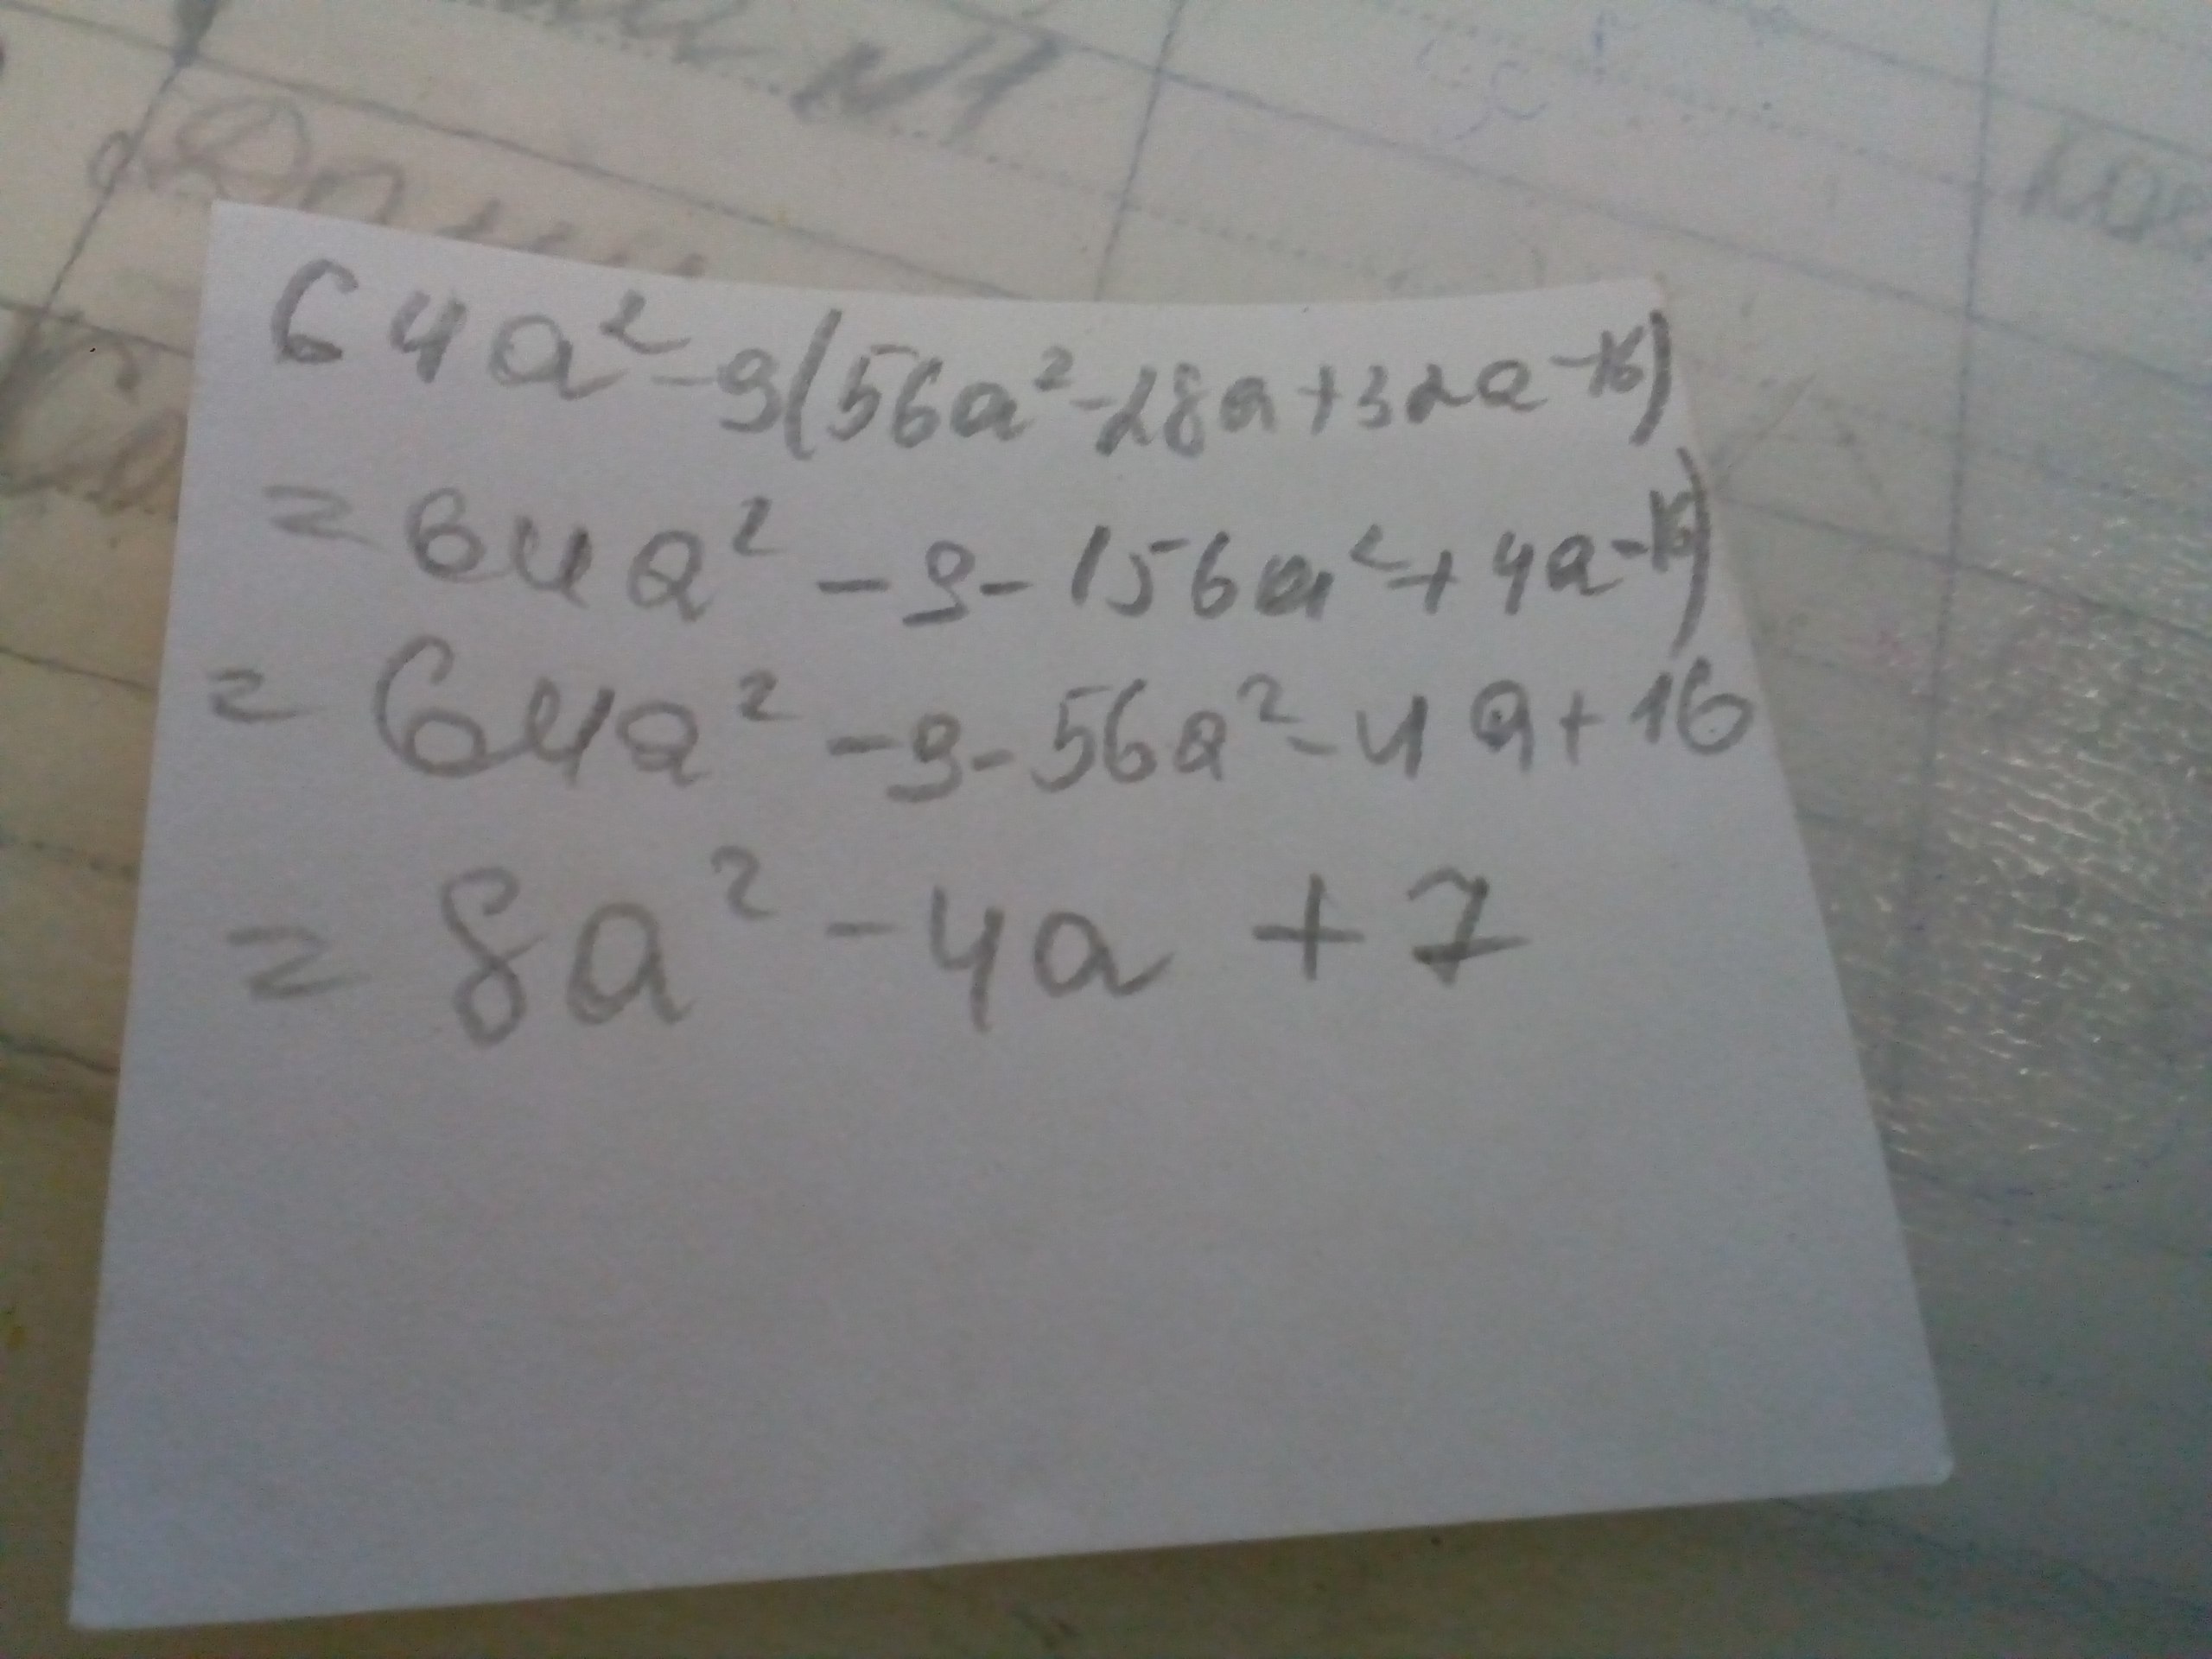 64a² - 9(56a² - 28a + 32a - 16)
= 64a² - 9 - (56a² + 4a - 16)
= 64a² - 9 - 56a² - 4a + 16
= 8a² - 4a + 7